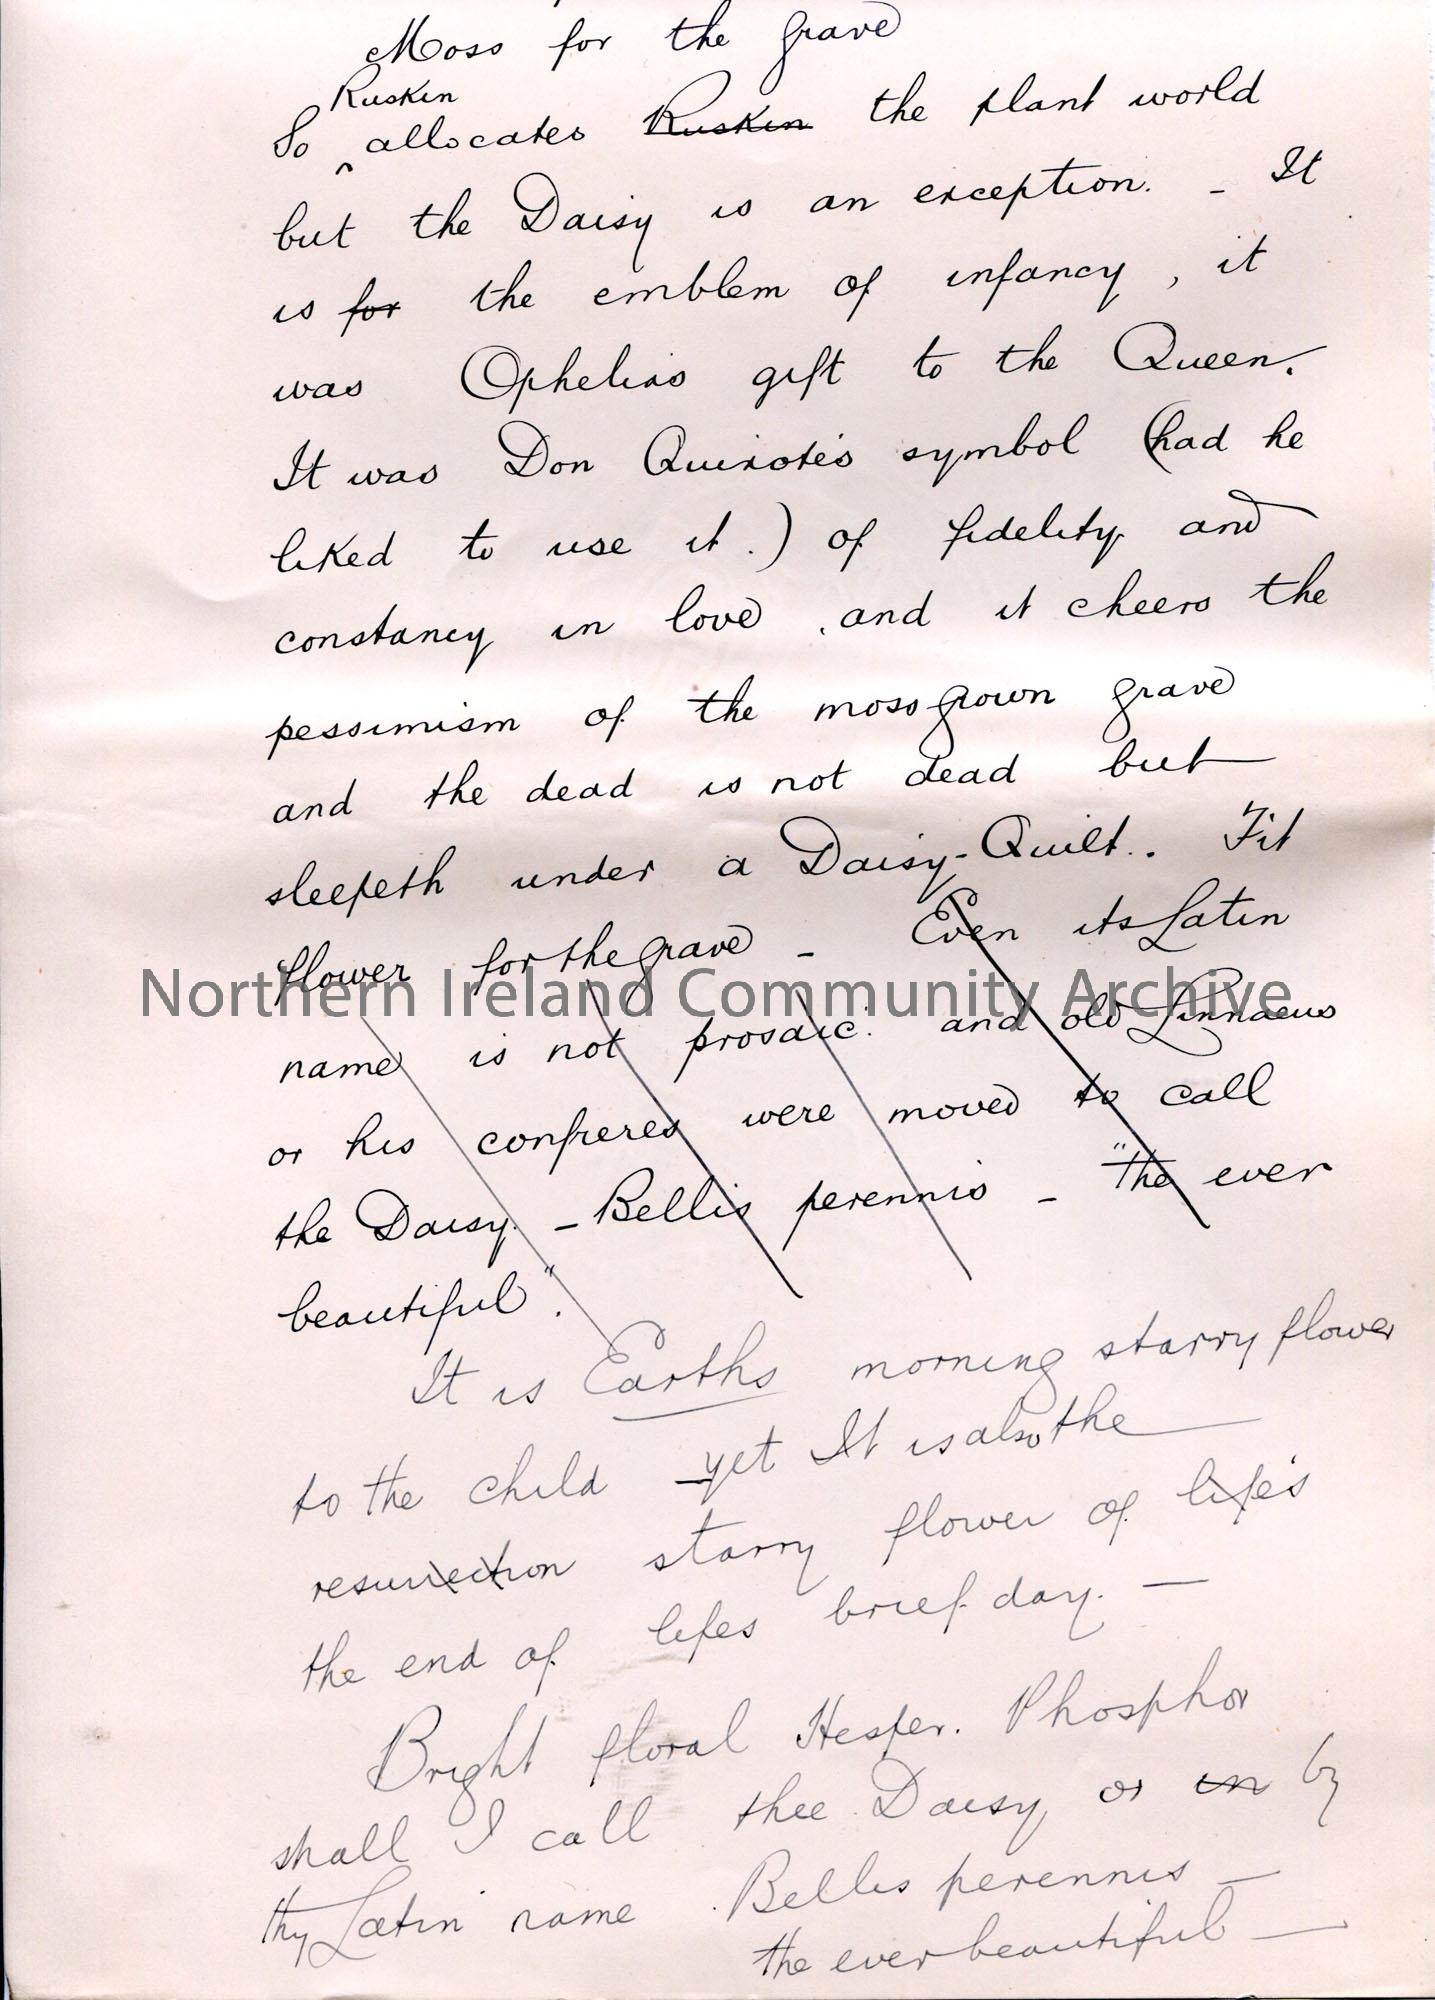 Moss for the grave
Ruskin
So ‸ allocates Ruskin the plant world
but the Daisy is an exception. - It
is for the emblem of infancy, it
was Ophelias gift to the Queen.
It was Don Quixote's symbol (had he
liked to use it.) of fidelity and
constancy in love, and it cheers the
pessimism of the mossgrown grave
and the dead is not dead but
sleepeth under a Daisy-Quilt.. Fit
flower for the grave - Even its Latin
Northern Ireland Community Archive
name is not prosaic. and old Linnaeus
or his confreres were moved to call
the Daisy. - Bellis perennis - "the ever
beautiful".
It is Earths morning starry flower
to the child - yet It is also the
resurrection starry flower of life's
the end of lifes brief day. -
Bright floral Hesper. Phosphor
shall I call thee Daisy or in by
thy Latin name. Bellis perennis -
the ever beautiful -